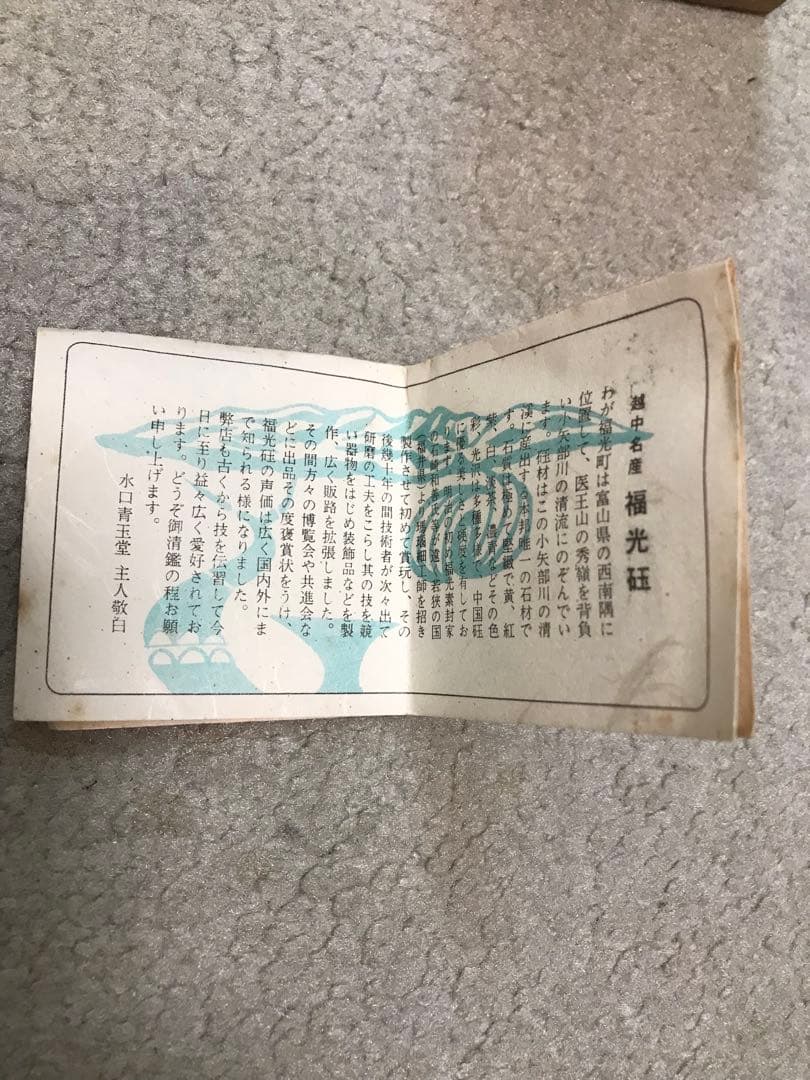 越中名産 福光砡
わが福光町は富山県の西南隅に
位置して、医王山の秀嶺を背負
い小矢部川の清流にのぞんでい
ます。砡材はこの小矢部川の清
渓に産出する本邦唯一の石材で
す。石質は極めて堅緻で黄、紅
紫、白、淡茶、濃青などその色
彩、光沢は多種多様で、中国砡
に優る美しさと硬度を有してお
ります。明治の初め福光素封家
の 等が遠く若狭の国
(福井県)より瑪瑙細工師を招き
製作させて初めて賞玩し、その
後幾十年の間技術者が次々出て
研磨の工夫をこらし其の技を競
い器物をはじめ装飾品などを製
作、広く販路を拡張しました。
その間方々の博覧会や共進会な
どに出品その度褒賞状をうけ、
福光砡の声価は広く国内外にま
で知られる様になりました。
弊店も古くから技を伝習して今
日に至り益々広く愛好されてお
ります。どうぞ御清鑑の程お願
い申し上げます。
水口青玉堂 主人敬白